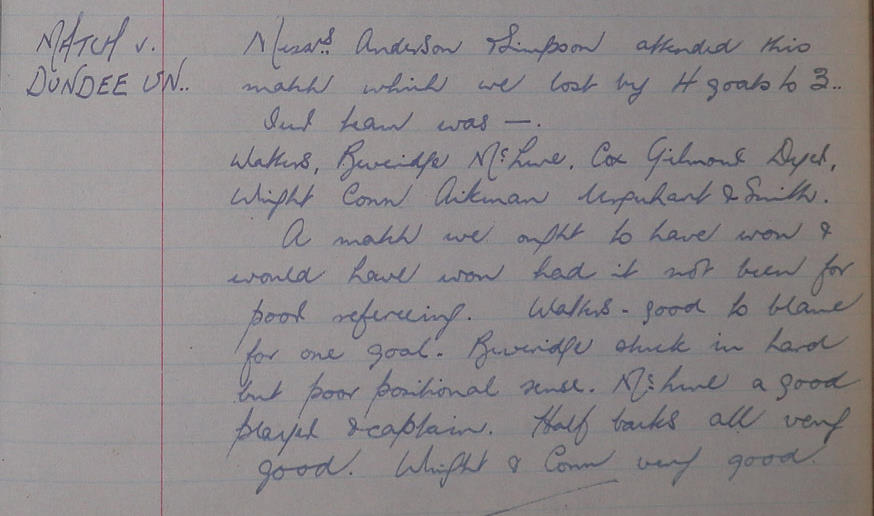 MATCH v.
DUNDEE UN..
Messrs. Anderson & Simpson attended this
match which we lost by 4 goals to 3..
Our team was —.
Watters, Beveridge McLure, Cox Gilmour Dyer,
Wright Conn Aikman Urquhart & Smith.
A match we ought to have won &
would have won had it not been for
poor refereeing. Watters - good to blame
for one goal. Beveridge stuck in hard
but poor positional sense. McLure a good
player & captain. Half backs all very
good. Wright & Conn very good.